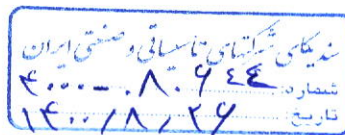 سندیکای شرکتهای تاسیساتی و صنعتی ایران
شماره: ۴۰۰۰-۰۸۰۶۴۴
تاریخ: ۱۴۰۰/۸/۲۶